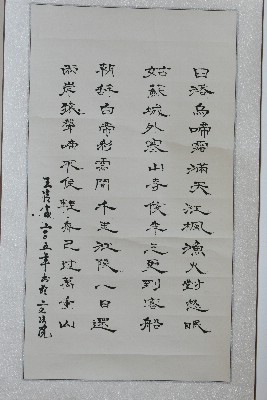 日落烏啼霜滿天江楓漁火對愁眠
姑蘇城外寒山寺夜半更到客船
朝辞白帝彩雲間千里江陵日還
兩岸猿聲啼不住輕舟已過萬重山
王二〇〇五年